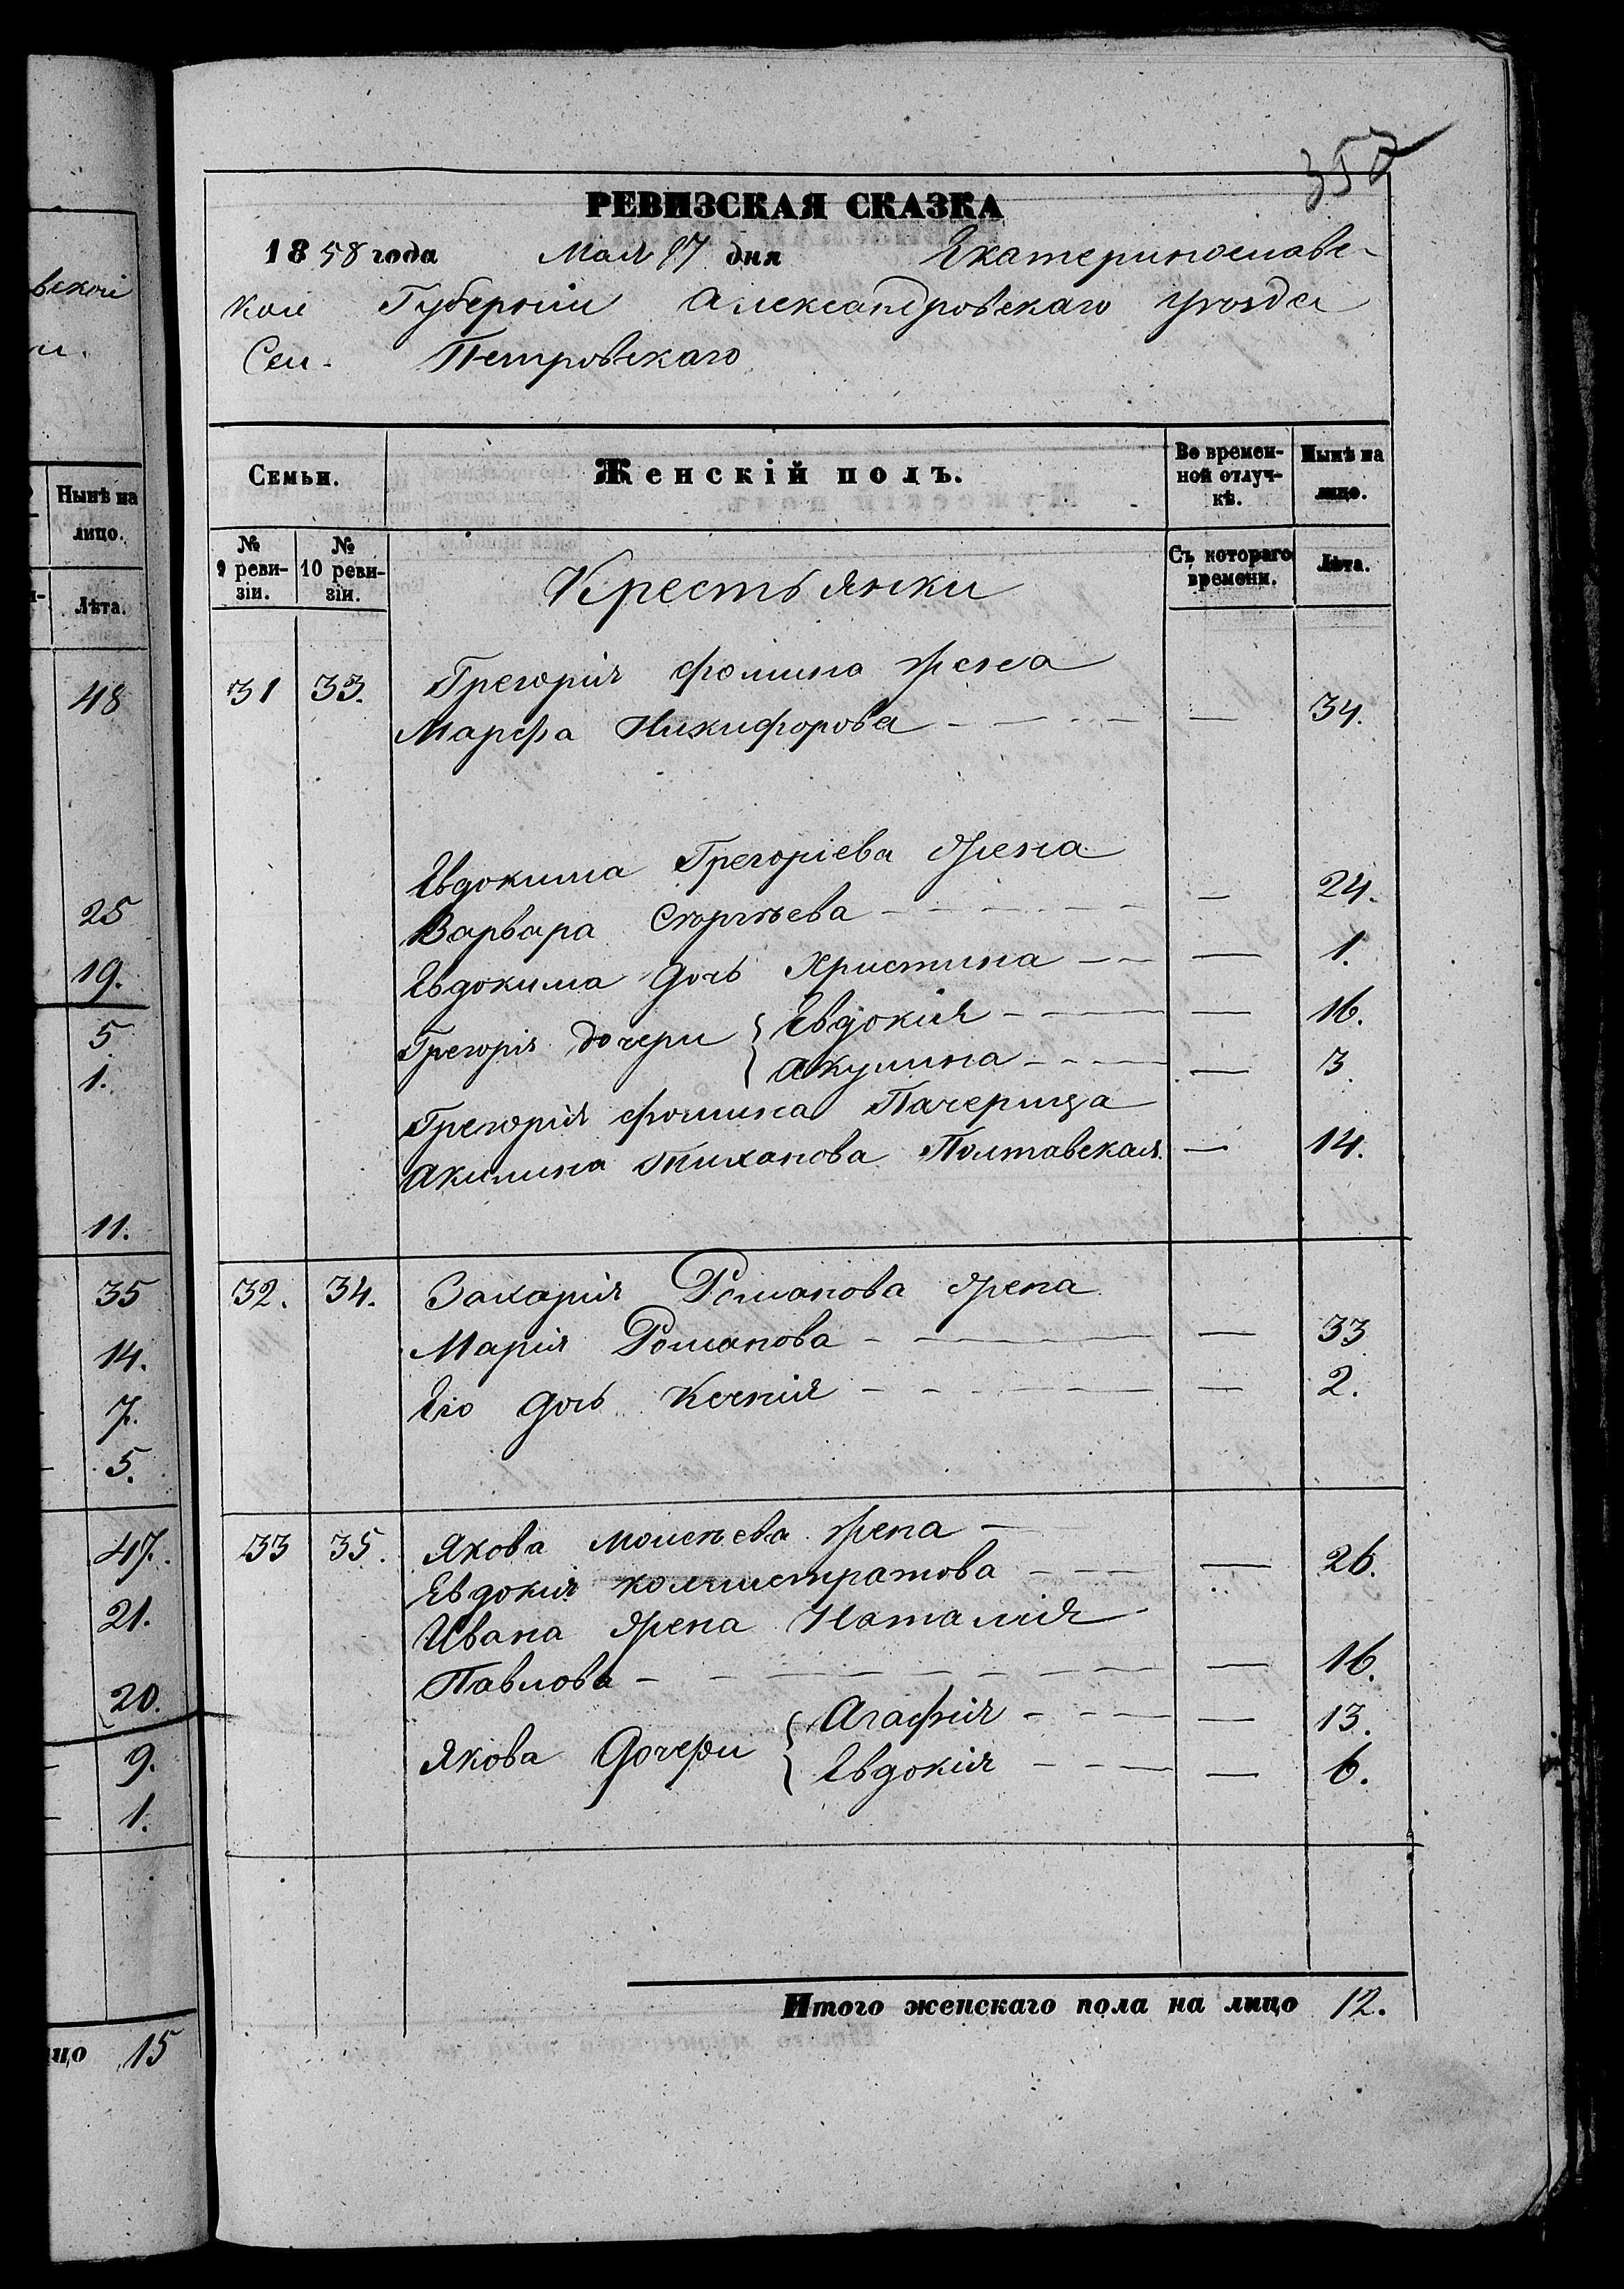 вской
48
25
19.
5
1.
11.
35
14.
7.
5.
47.
21.
20.
9.
1.
15
Нынѣ на
лицо.
Лѣта.
РЕВИЗСКАЯ СКАЗКА
1858 года Мая 17 дня Екатеринославс-
кой Губерніи Александровскаго уѣзда
Сел. Петровскаго
Семьи. Женскій полъ. Во времен-ной отлуч-кѣ. Нынѣ на лицо.
№ 9 реви-зіи. № 10 реви-зіи. Крестьянки Съ котораго времени. Лѣта.
31 33. Грегорія Фомина жена
Марфа Никифорова — — 34.
Евдокима Грегоріева жена
Варвара Сергѣева — — 24.
Евдокима дочь Христина — — 1.
Грегорія дочери { Евдокія — — 16.
Акулина — — 3.
Грегорія Фомина Пачерица
Акилина Тиханова Полтавская. — 14.
32. 34. Захарія Романова жена
Марія Романова — — 33
Его дочь Ксенія — — 2.
33 35. Якова Моисѣева жена —
Евдокія Колистратова — — 26.
Ивана жена Наталія
Павлова — — 16.
Якова Дочери { Агафія — — 13.
Евдокія — — 6.
Итого женскаго пола на лицо 12.